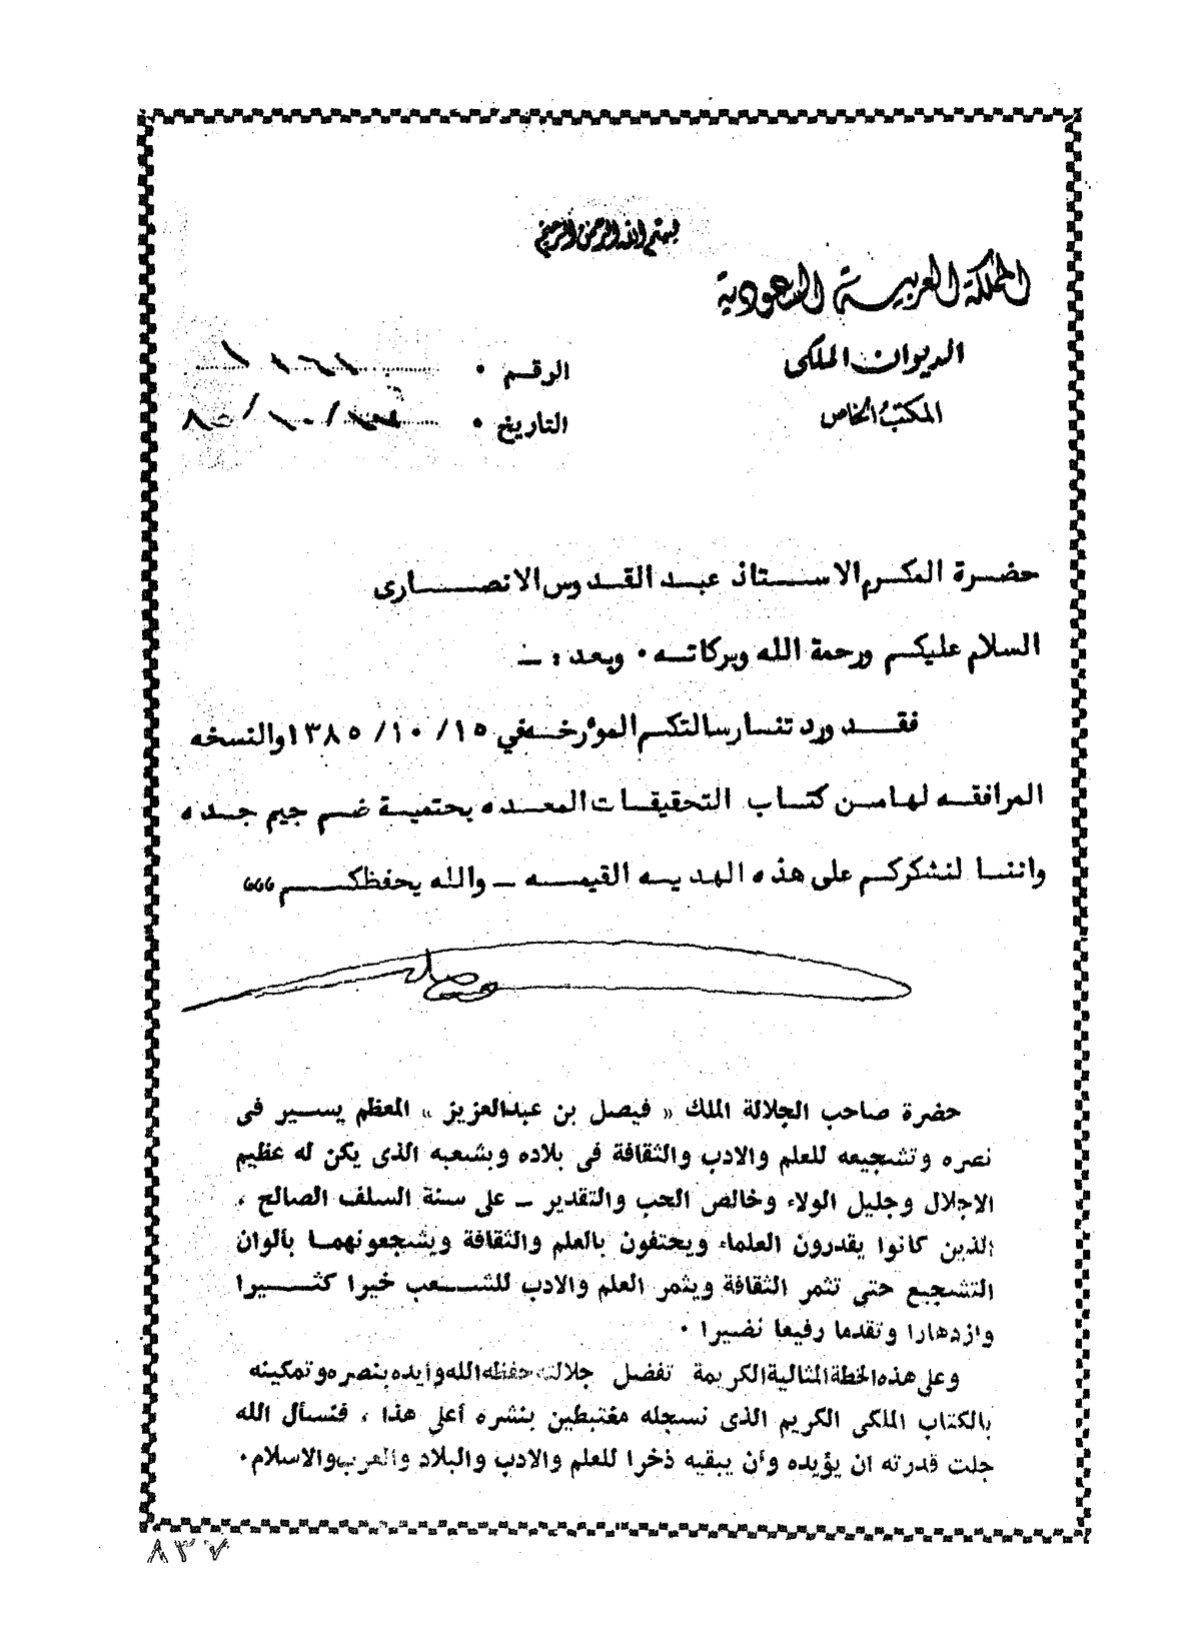 بسم الله الرحمن الرحيم
المملكة العربية السعودية
الديوان الملكى
المكتب الخاص
الرقم ٠
التاريخ ٠ / ١٠ / ٨٥
حضرة المكرم الاستاذ عبد القدوس الانصارى
السلام عليكم ورحمة الله وبركاته ٠ وبعد : ــ
فقد ورد تنا رسالتكم المؤرخه في ١٥ /١٠ /١٣٨٥ والنسخه
المرافقه لها من كتاب التحقيقات المعده بحتمية ضم جيم جده
واننا لنشكركم على هذه الهديه القيمه ــ والله يحفظكم ،،،
فيصل
حضرة صاحب الجلالة الملك « فيصل بن عبدالعزيز » المعظم يسير فى
نصره وتشجيعه للعلم والادب والثقافة فى بلاده وبشعبه الذى يكن له عظيم
الاجلال وجليل الولاء وخالص الحب والتقدير ــ على سنة السلف الصالح ،
الذين كانوا يقدرون العلماء ويحتفون بالعلم والثقافة ويشجعونهما بألوان
التشجيع حتى تثمر الثقافة ويثمر العلم والادب للشعب خيرا كثيرا
وازدهارا وتقدما رفيعا نضيرا ٠
وعلى هذه الخطة المثالية الكريمة تفضل جلالته حفظه الله وأيده بنصره وتمكينه
بالكتاب الملكى الكريم الذى نسجله مغتبطين بنشره أعلى هذا ، فنسأل الله
جلت قدرته ان يؤيده وأن يبقيه ذخرا للعلم والادب والبلاد والعرب والاسلام ٠
٨٣٧